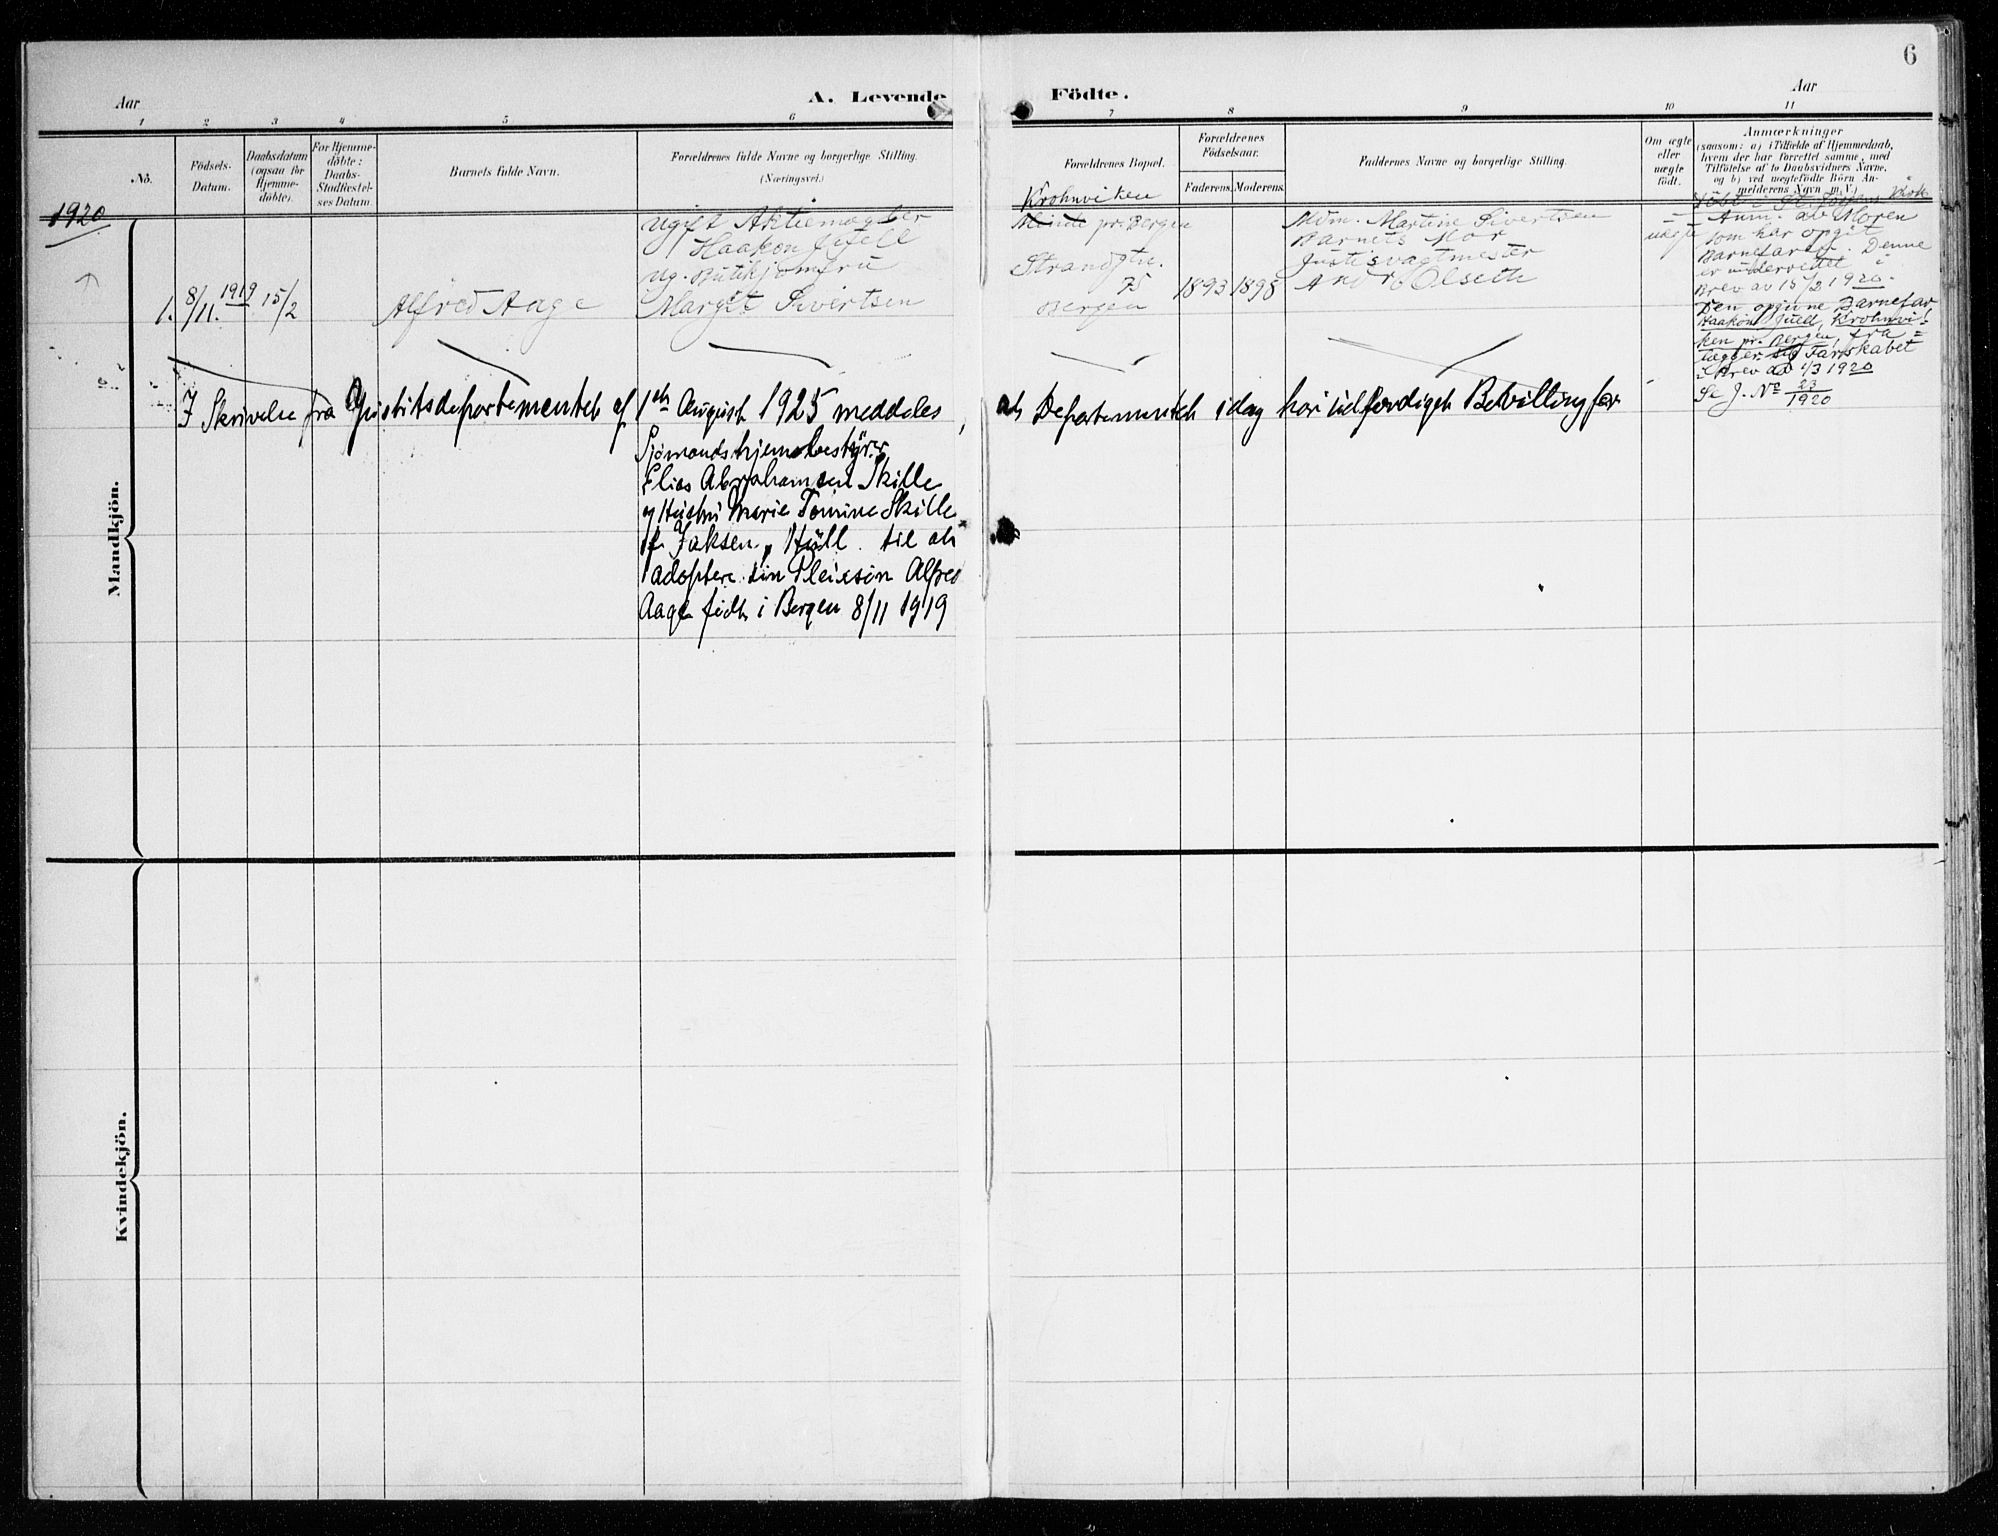 6
Aar
A. Levende
Födte.
Aar
1
2
3
4
5
6
7
8
9
10
11
No.
Födsels-
Datum.
Daabsdatum
(ogsaa for
Hjemme-
döbte).
For Hjemme-
döbte:
Daabs-
Stadfæstel-
ses Datum.
Barnets fulde Navn.
Forældrenes fulde Navne og borgerlige Stilling.
(Næringsvei.)
Forældrenes Bopæl.
Forældrenes
Födselsaar.
Faderens.
Moderens.
Faddernes Navne og borgerlige Stilling.
Om ægte
eller
uægte
født.
Anmærkninger
(saasom: a) i Tilfælde af Hjemmedaab,
hvem der har forrettet samme, med
Tilföielse af to Daabsvidners Navne,
og b) ved uægtefödte Börn An-
melderens Navn m. V.)
1920
Mandkjön.
1.
8/11. 1919
15/2
Alfred Aage
Ugift
Haakon Juell
Ug. Butikjomfru
Margit Sivertsen
Krohnviken
Minde pr. Bergen
Strandgtn.
Bergen
1893
1898
Mdm. Martine Sivertsen
Barnets Mor
Justisvagtmester
Olseth
uægte
Döbt i
Anm. av Moren
som har opgit
Barnefaren. Denne
er underrettet i
Brev av 15/2 1920.
Den opgivne Barnefar
Haakon Juell, Krohnvi-
ken pr. Bergen, fra-
lægger sig Farskabet
i Brev av 1/3 1920
Se J. No 23/1920
I Skrivelse fra Justitsdepartementet af 1ste August 1925 meddeles, at Departementet idag har utfærdiget Bevilling for
Sjømandshjembestyrer
Elias Abrahamsen Skille
og Hustru Marie Tomine Skille
f. Jaksen, Hull. til at
adoptere sin Pleiesøn Alfred
Aage født i Bergen 8/11 1919
Kvindekjön.